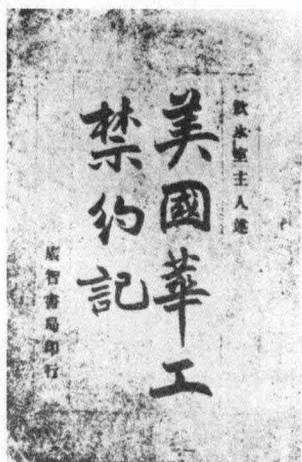 飲冰室主人述
美國華工
禁約記
廣智書局印行